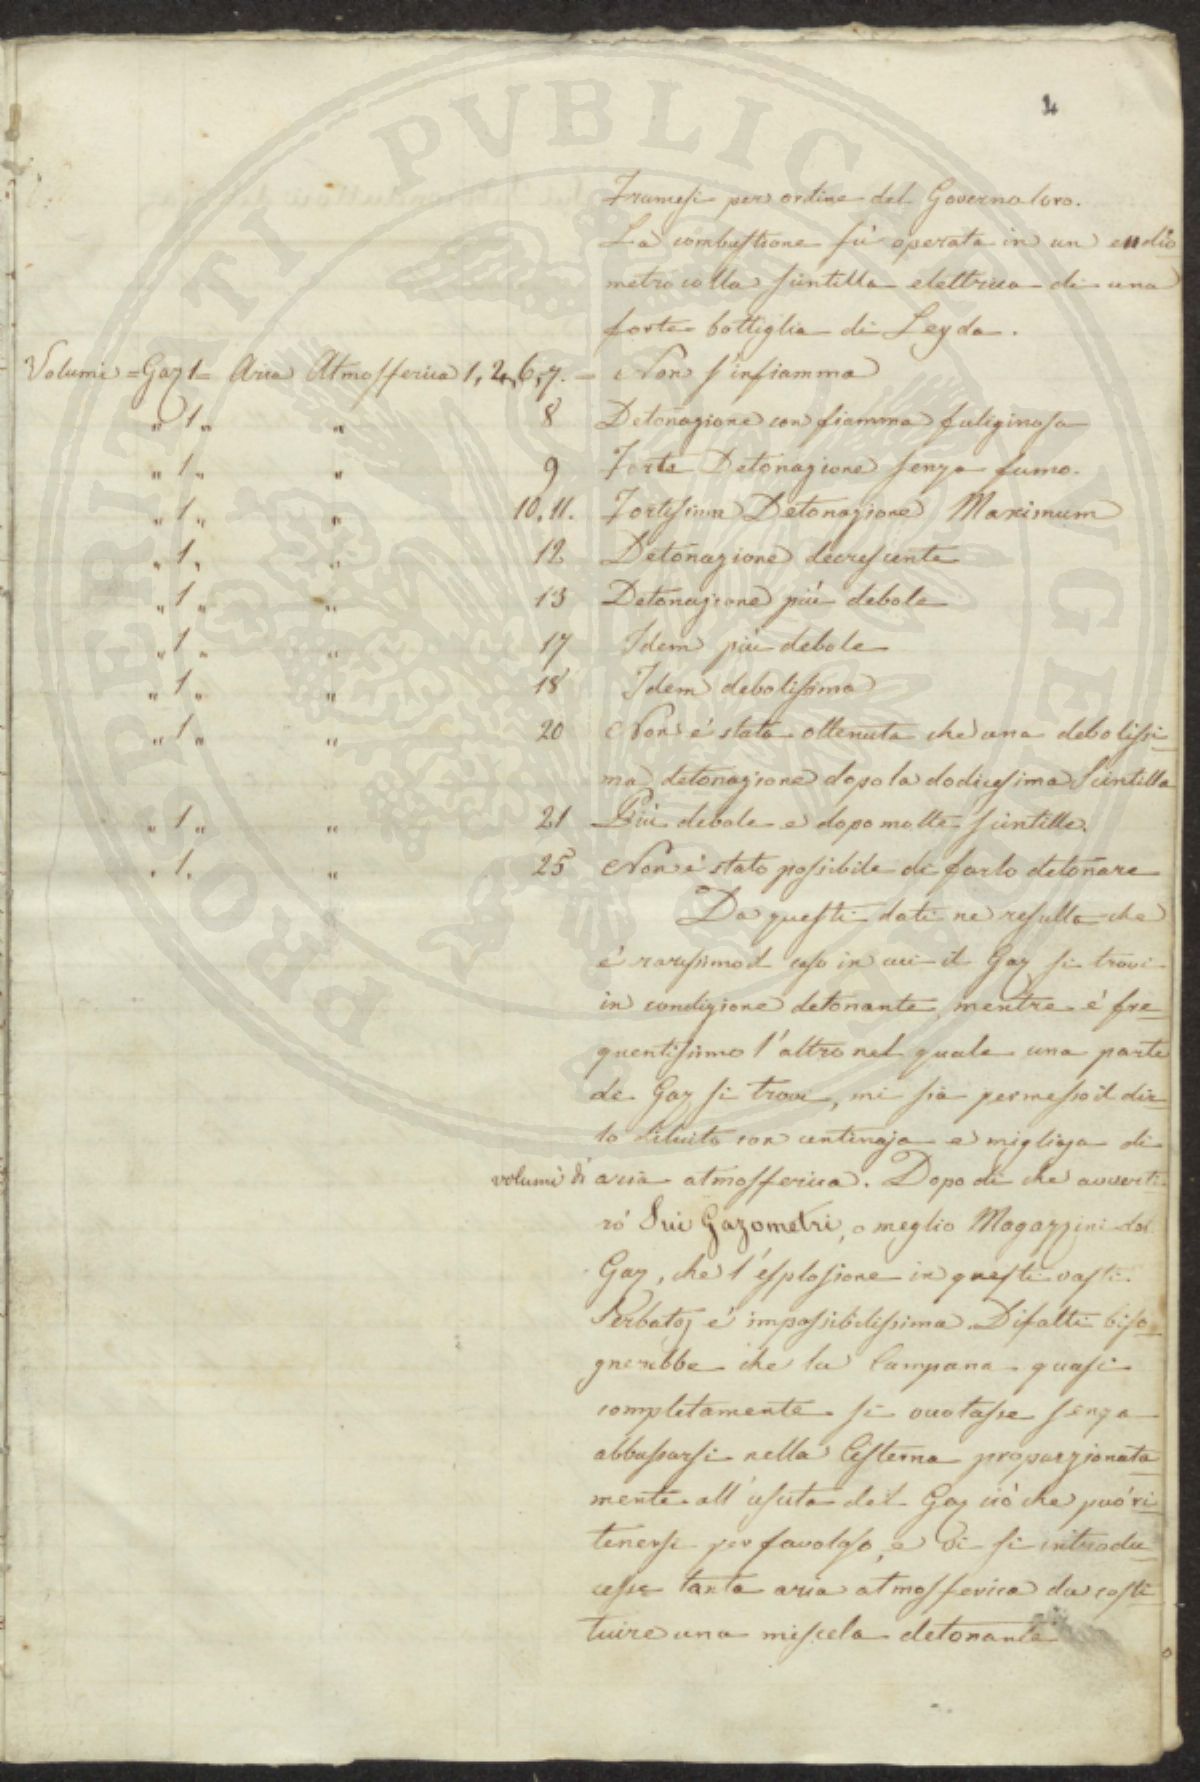 4
Francesi per ordine del Governo loro.
La combustione fù operata in un eudio
metro colla scintilla elettrica di una
forte bottiglia di Leyda.
Volumi = Gaz 1 = Aria Atmosferica 1, 2, 6, 7. = Non s'infiamma
„ 1 „ „ 8 Detonazione con fiamma fuliginosa
„ 1 „ „ 9 Forte Detonazione senza fumo.
„ 1 „ „ 10, 11. Fortissima Detonazione Maximum
„ 1 „ „ 12 Detonazione decrescente
„ 1 „ „ 13 Detonazione più debole
„ 1 „ „ 17 Idem più debole
„ 1 „ „ 18 Idem debolissima
„ 1 „ „ 20 Non è stata ottenuta che una debolissi-
ma detonazione dopo la dodicesima Scintilla
„ 1 „ „ 21 Più debole e dopo molte scintille.
„ 1 „ „ 25 Non è stato possibile di farlo detonare
Da questi dati ne resulta che
è rarissimo il caso in cui il Gaz si trovi
in condizione detonante, mentre è fre-
quentissimo l'altro nel quale una parte
de Gaz si trovi, mi sia permesso il dir-
lo diluita con centinaja e migliaja di
volumi di aria atmosferica. Dopo di che avverti-
rò Sui Gazometri, o meglio Magazzini del
Gaz, che l'esplosione in questi vasti
Serbatoj è impossibilissima. Difatti biso-
gnerebbe che la Campana quasi
completamente si vuotasse senza
abbassarsi nella Cisterna proporzionata-
mente all'uscita del Gaz ciò che può ri-
tenersi per favoloso, e vi si introdu-
cesse tanta aria atmosferica da costi-
tuire una miscela detonante
PROSPERITATI PVBLICAE AVGENDAE